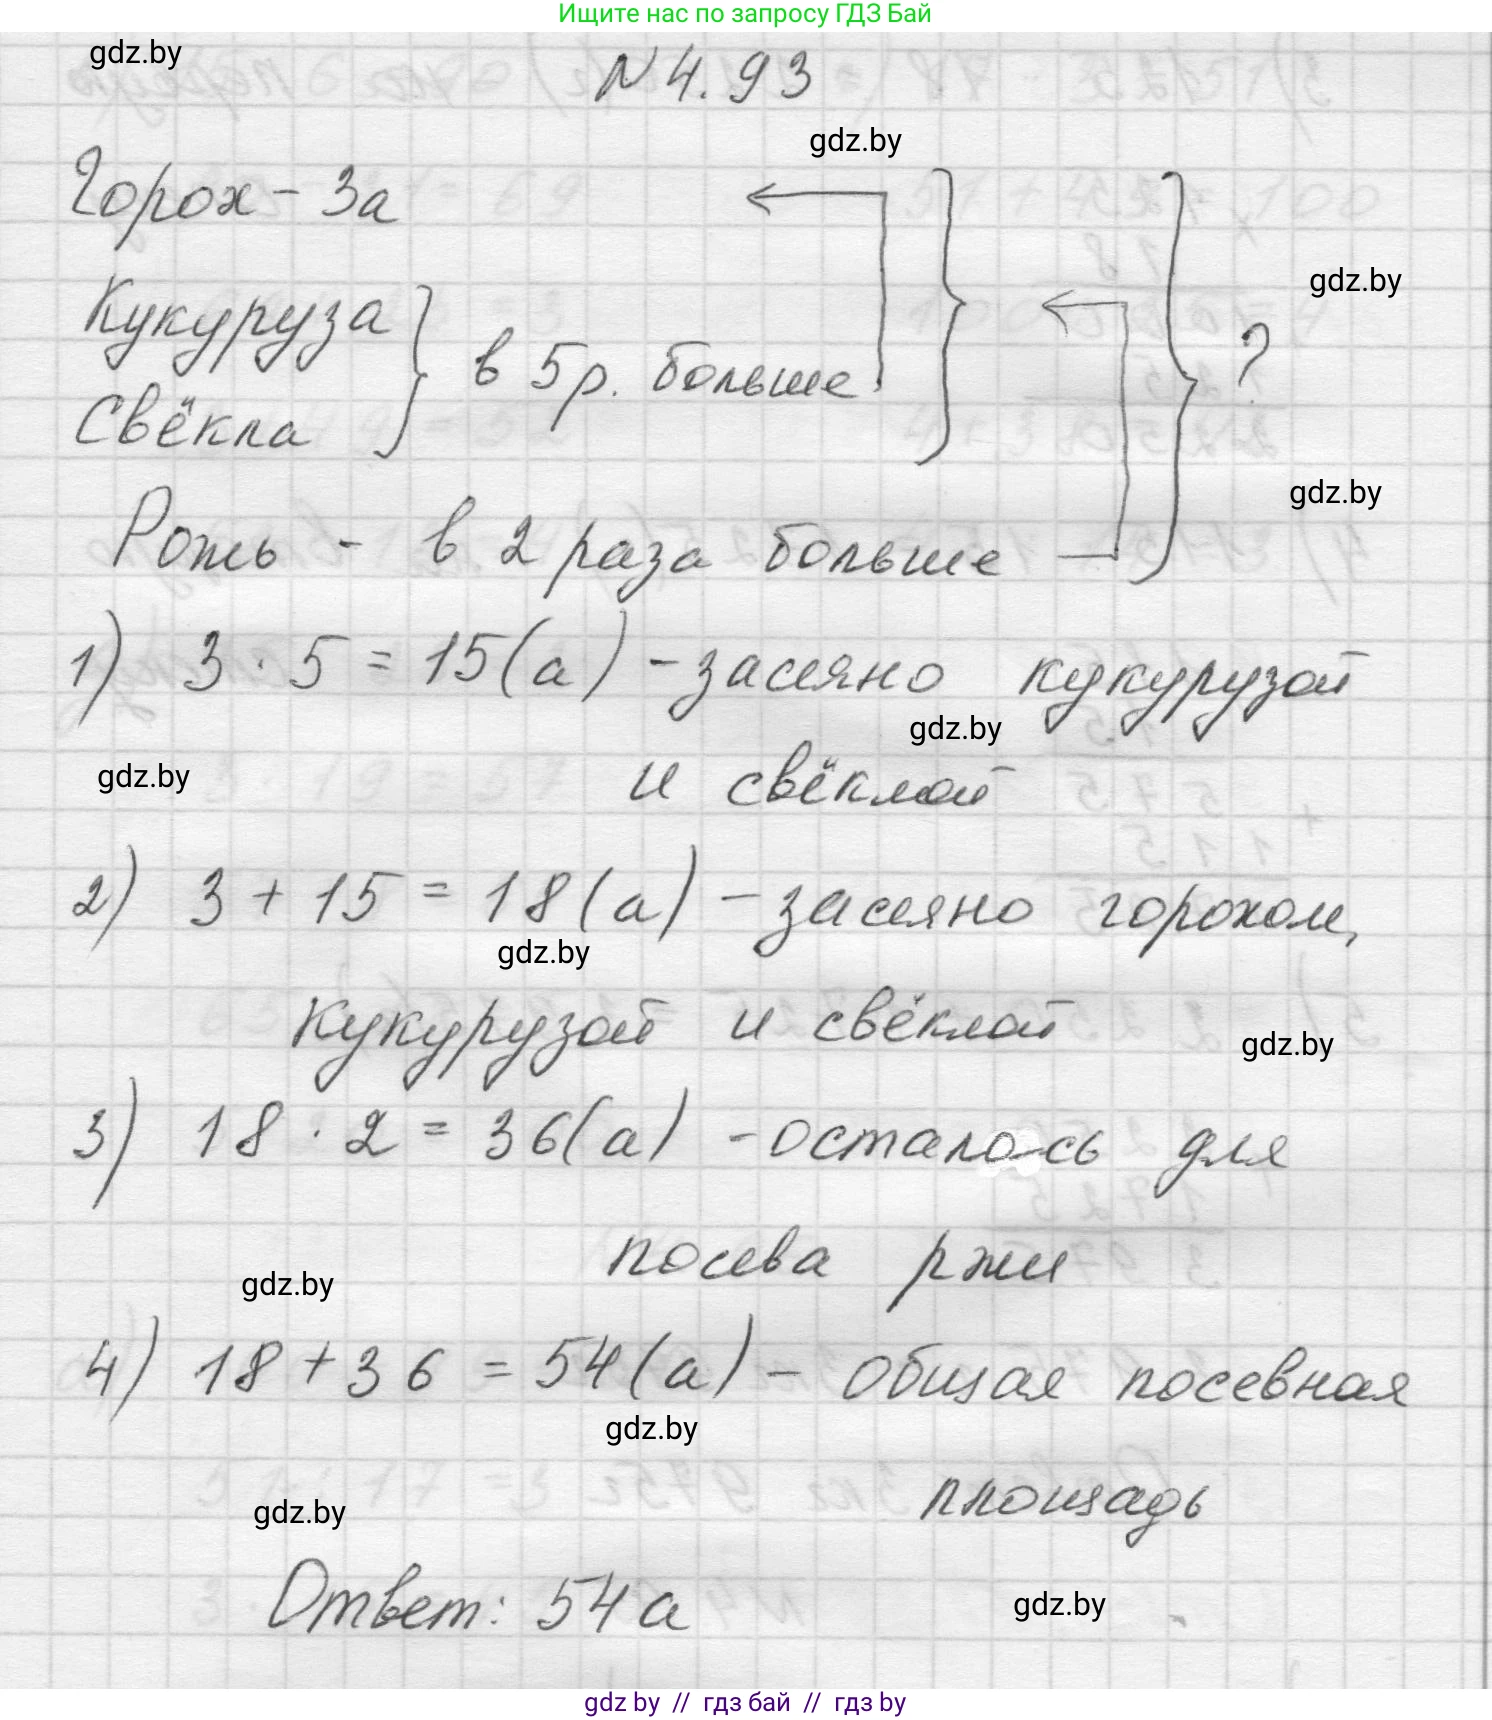 Ищите нас по запросу ГДЗ Бай
gdz.by
N 4.93
gdz.by
Горох - 3а
gdz.by
Кукуруза
Свёкла
в 5 р. больше
?
gdz.by
Рожь - в 2 раза больше
1) 3 · 5 = 15 (а) - засеяно кукурузой
gdz.by
gdz.by
и свёклой
2) 3 + 15 = 18 (а) - засеяно горохом,
gdz.by
кукурузой и свёклой
gdz.by
3) 18 · 2 = 36 (а) - осталось для
посева ржи
gdz.by
4) 18 + 36 = 54 (а) - общая посевная
gdz.by
площадь
gdz.by
Ответ: 54 а
gdz.by
gdz by // гдз бай // гдз by